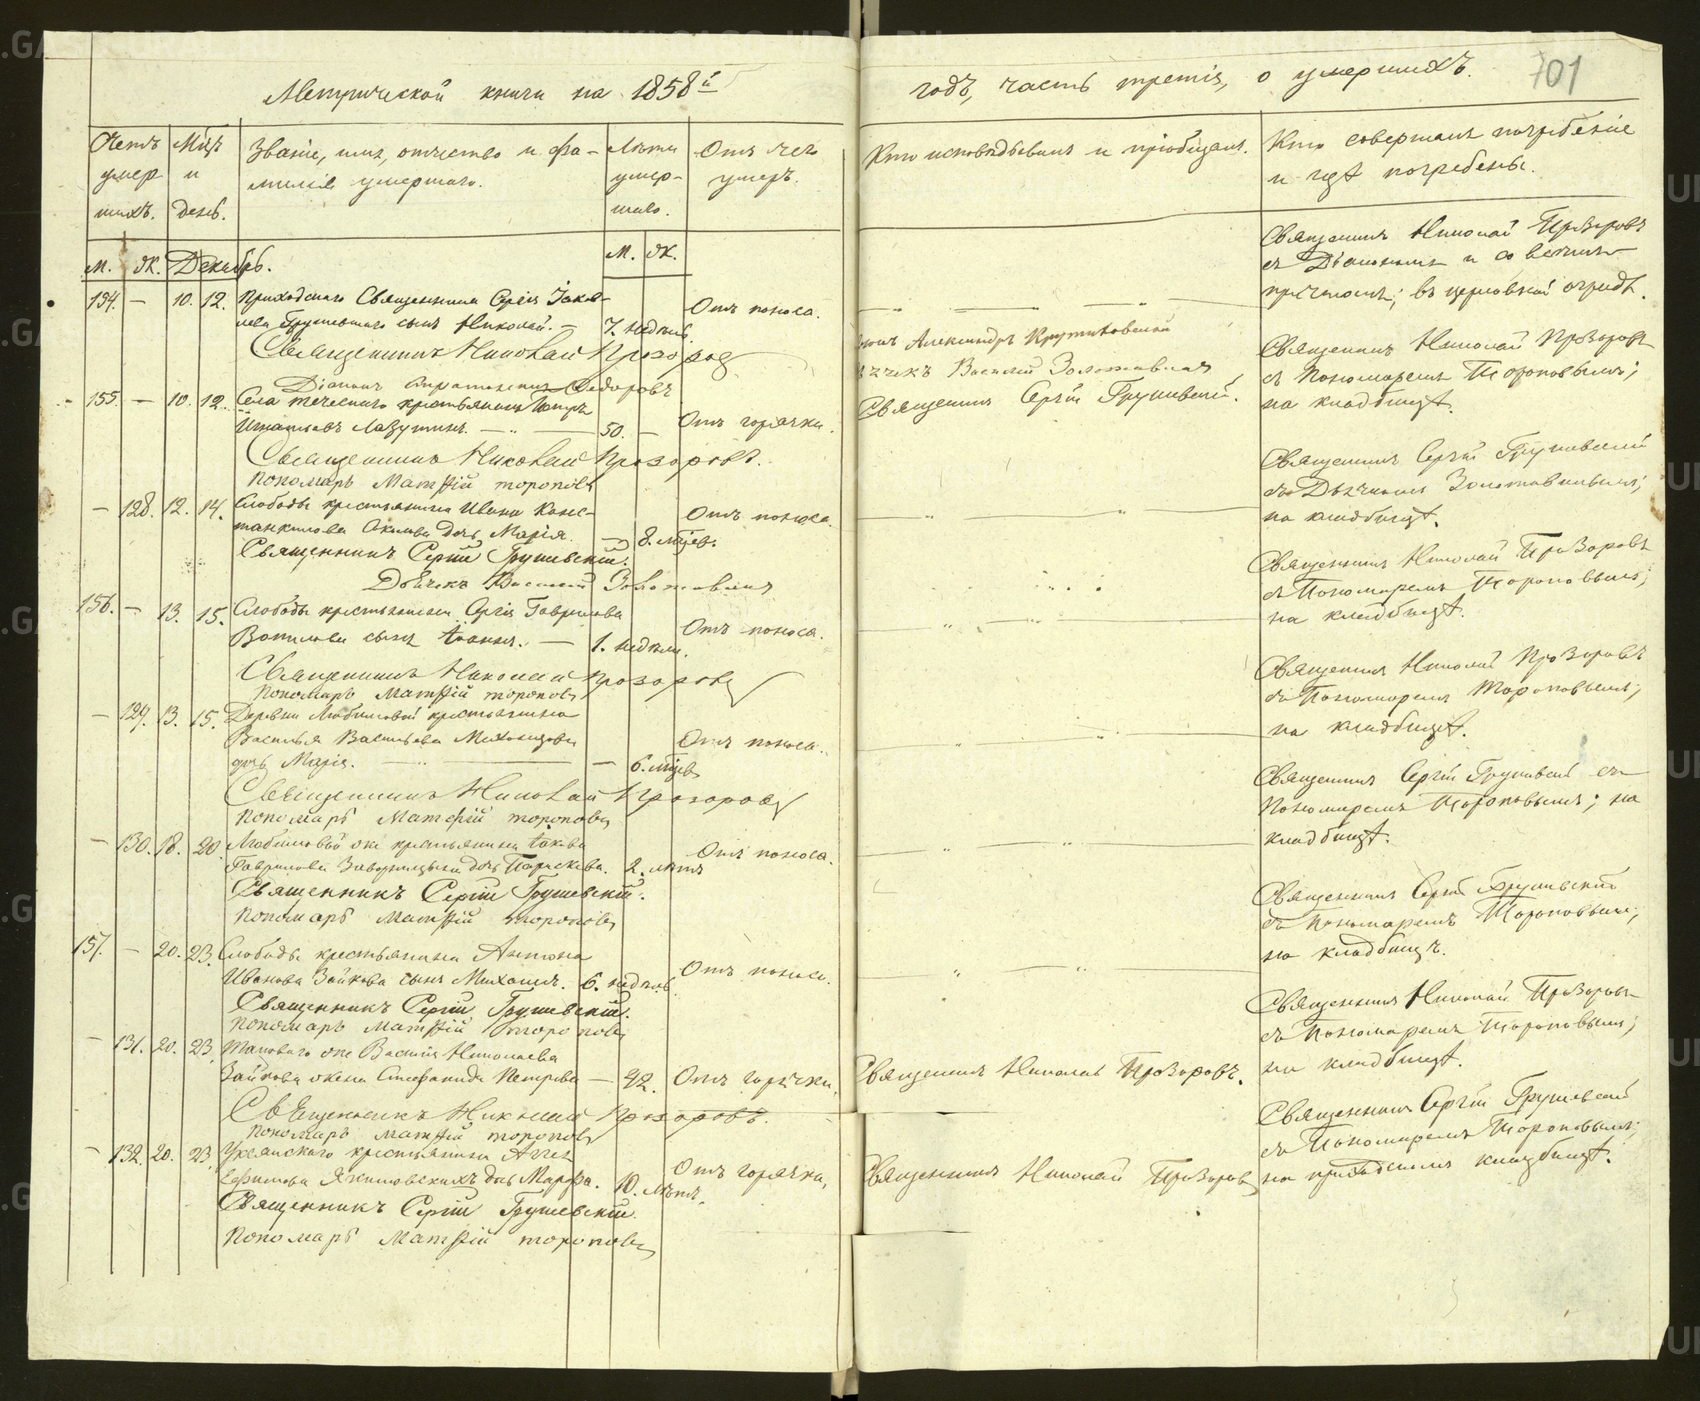 Метрической книги на 1858й
годъ, часть третія, о умершихъ.
701
Счетъ умер- шихъ.
Мѣсц и день.
Званіе, имя, отчество и фа-
милія умершаго.
Лѣта умер- шаго.
Отъ чего умеръ.
Кто исповѣдывалъ и пріобщалъ.
Кто совершалъ погребеніе
и гдѣ погребены.
м. ж. Декабрь. м. ж.
154. — 10. 12. Приходскаго Священника Сергія Іаков-
лева Грушевскаго сынъ Николай. — 7. недѣль. Отъ поноса.
Священникъ Николай Прозоровъ
Діаконъ Федоровъ
Священникъ Николай Прозоровъ
съ Діакономъ и со всѣмъ
причтомъ; въ церковной оградѣ.
155. — 10. 12. Села Теченскаго крестьянинъ Петръ
Игнатьевъ Лазутинъ. — 50. — Отъ горячки.
Священникъ Николай Прозоровъ.
Пономарь Матѳій Тороповъ
Александръ Крутиховской
Василій Золотавинъ
Священникъ Сергій Грушевскій.
Священникъ Николай Прозоровъ
съ Пономаремъ Тороповымъ;
на кладбищѣ.
— 128. 12. 14. Слободы крестьянина Ивана Конс-
дочь Марія. — 8. мѣсцъ. Отъ поноса.
Священникъ Сергій Грушевскій.
Дьячекъ Василій Золотавинъ
Священникъ Сергій Грушевскій
съ Дьячкомъ Золотавинымъ;
на кладбищѣ.
156. — 13. 15. Слободы крестьянина Сергія Гаврилова
Вотилова сынъ Іоаннъ. — 1. недѣли. Отъ поноса.
Священникъ Николай Прозоровъ
Пономарь Матѳій Тороповъ
Священникъ Николай Прозоровъ
съ Пономаремъ Тороповымъ;
на кладбищѣ.
— 129. 13. 15. Деревни Любимовой крестьянина
Василья Васильева
дочь Марія. — — 6. мѣсцъ Отъ поноса.
Священникъ Николай Прозоровъ
Пономарь Матѳій Тороповъ
Священникъ Николай Прозоровъ
съ Пономаремъ Тороповымъ;
на кладбищѣ.
— 130. 18. 20. Любимовой же крестьянина Іакова
Гаврилова дочь Параскева. 2. лѣтъ Отъ поноса.
Священникъ Сергій Грушевскій.
Пономарь Матѳій Тороповъ
Священникъ Сергій Грушевскій съ
Пономаремъ Тороповымъ; на
кладбищѣ.
157. — 20. 23. Слободы крестьянина Антона
Иванова Зайкова сынъ Михаилъ. 6. недѣль. Отъ поноса.
Священникъ Сергій Грушевскій.
Пономарь Матѳій Тороповъ
Священникъ Сергій Грушевскій
съ Пономаремъ Тороповымъ;
на кладбищѣ.
— 131. 20. 23. Таковаго же Василія Николаева
Зайкова жена Стефанида Петрова — 42. Отъ горячки.
Священникъ Николай Прозоровъ.
Пономарь Матѳій Тороповъ
Священникъ Николай Прозоровъ.
Священникъ Николай Прозоровъ
съ Пономаремъ Тороповымъ;
на кладбищѣ.
— 132. 20. 23. Уксянскаго крестьянина Аггея
Ефимова дочь Марѳа. 10. лѣтъ. Отъ горячки.
Священникъ Сергій Грушевскій.
Пономарь Матѳій Тороповъ
Священникъ Николай Прозоровъ
Священникъ Сергій Грушевскій
съ Пономаремъ Тороповымъ;
на приходскомъ кладбищѣ.